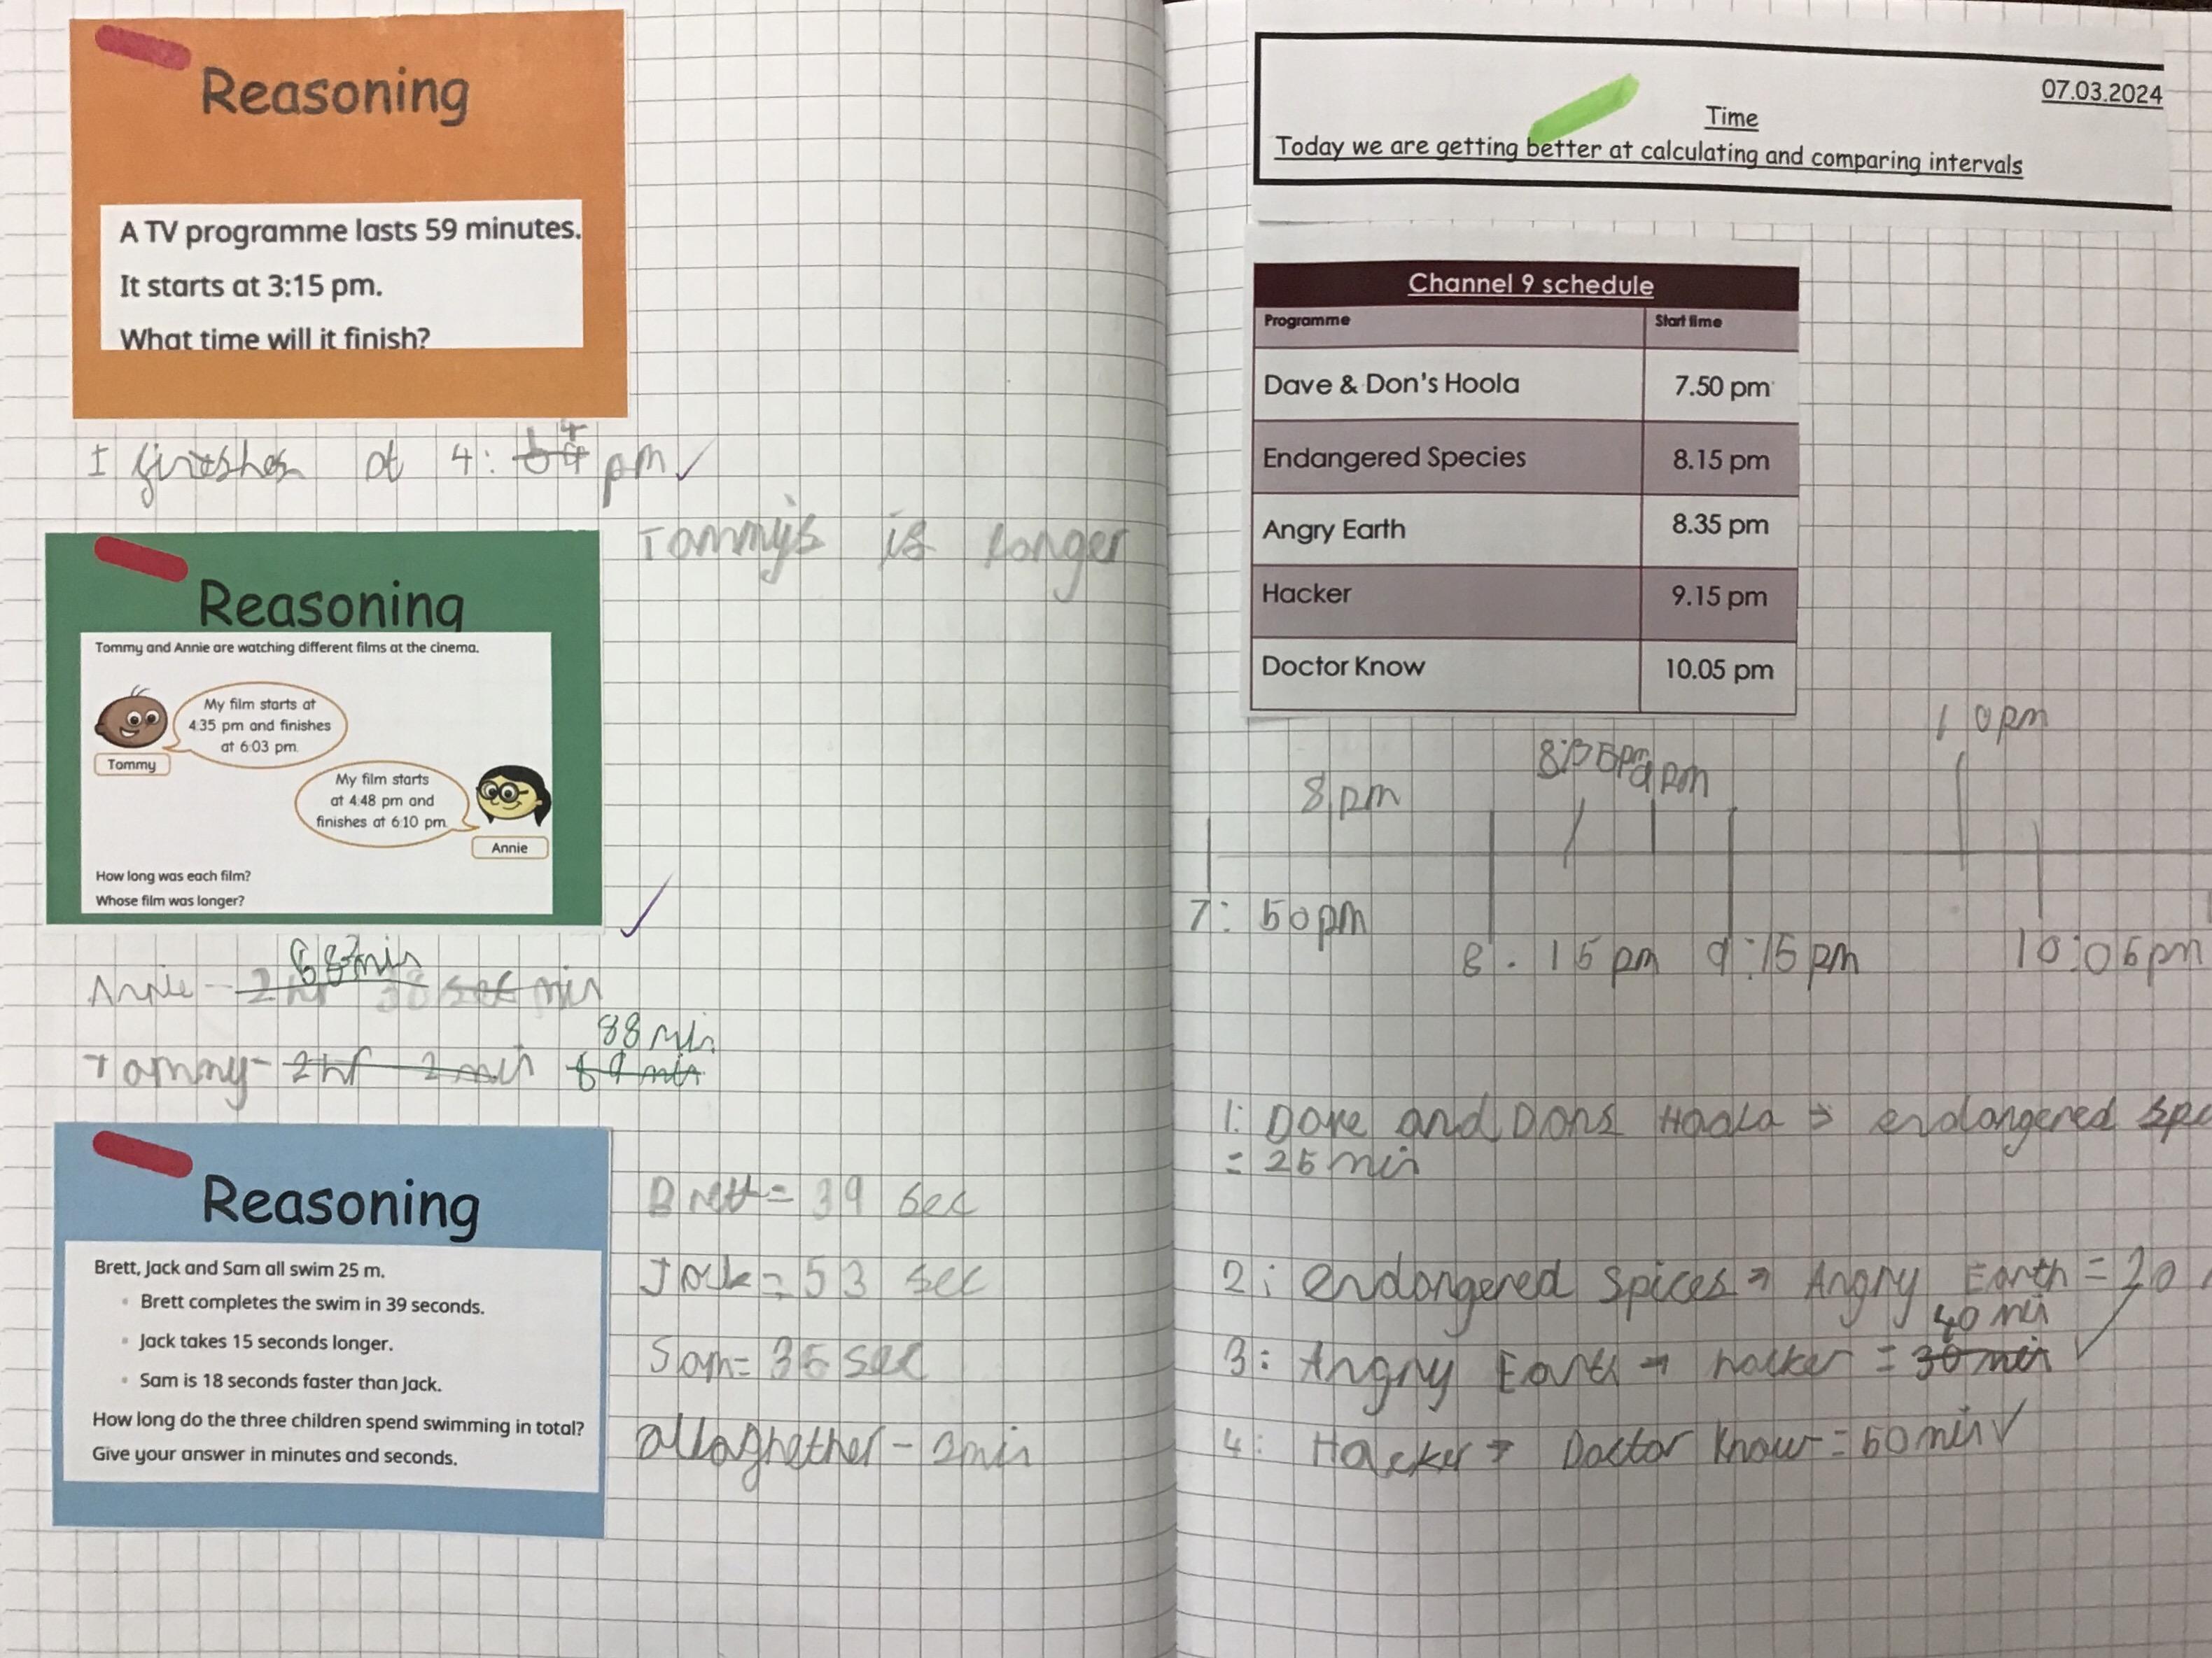 Reasoning
A TV programme lasts 59 minutes.
It starts at 3:15 pm.
What time will it finish?
I finishes at 4: 14 pm
Reasoning
Tommy and Annie are watching different films at the cinema.
My film starts at
4:35 pm and finishes
at 6:03 pm.
Tommy
My film starts
at 4:48 pm and
finishes at 6:10 pm.
Annie
How long was each film?
Whose film was longer?
Tommy's is longer
Annie - 2 hr 38 sec min
Tommy - 2 hr 2 min 88 min
Reasoning
Brett, Jack and Sam all swim 25 m.
Brett completes the swim in 39 seconds.
Jack takes 15 seconds longer.
Sam is 18 seconds faster than Jack.
How long do the three children spend swimming in total?
Give your answer in minutes and seconds.
Brett = 39 sec
Jack = 53 sec
Sam = 35 sec
allaghether - 2min
07.03.2024
Time
Today we are getting better at calculating and comparing intervals
Channel 9 schedule
Programme Start time
Dave & Don's Hoola 7.50 pm
Endangered Species 8.15 pm
Angry Earth 8.35 pm
Hacker 9.15 pm
Doctor Know 10.05 pm
8 pm 8:35pm 9 pm 10pm
7:50pm 8.15pm 9:15pm 10:05pm
1: Dave and Dons Hoola → endangered
= 25 min
2: endangered Spices → Angry Earth = 20
40 min
3: Angry Earth → hacker = 30 min
4: Hacker → Doctor Know = 50min